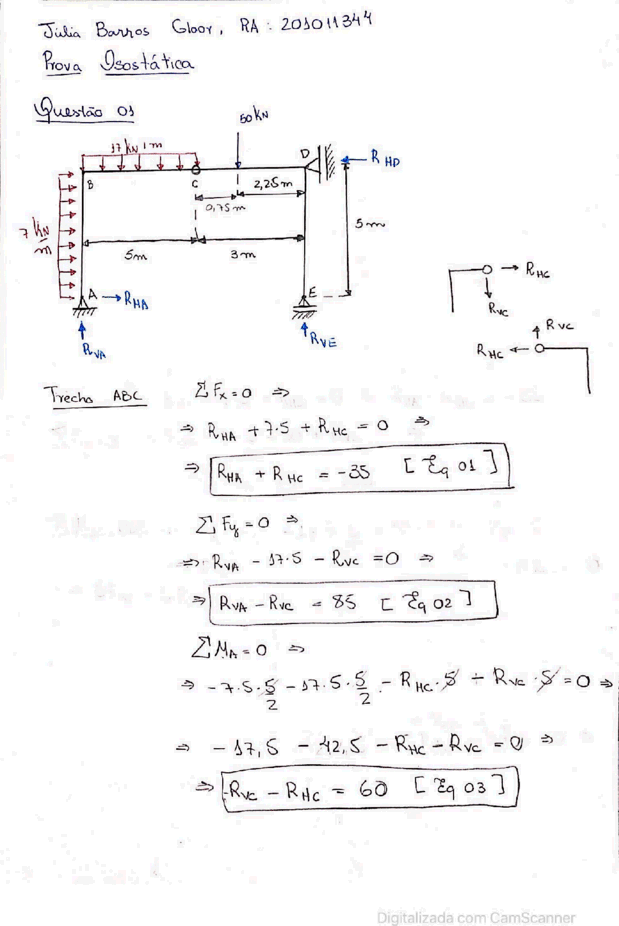 Júlia Barros Gloor, RA: 201011344
Prova Isostática
Questão 01
50 kN
17 kN/m
D
R_HD
B
C
2,25m
0,75m
7 kN/m
5m
3m
5m
A
R_HA
E
R_VA
R_VE
R_HC
R_VC
R_VC
R_HC
Trecho ABC
ΣFx = 0 ⇒
⇒ R_HA + 7.5 + R_HC = 0 ⇒
⇒ R_HA + R_HC = -35 [Eq 01]
ΣFy = 0 ⇒
⇒ R_VA - 17.5 - R_VC = 0 ⇒
⇒ R_VA - R_VC = 85 [Eq 02]
ΣM_A = 0 ⇒
⇒ -7.5.5/2 - 17.5.5/2 - R_HC.5 - R_VC.5 = 0 ⇒
⇒ -17,5 - 42,5 - R_HC - R_VC = 0 ⇒
⇒ -R_VC - R_HC = 60 [Eq 03]
Digitalizada com CamScanner